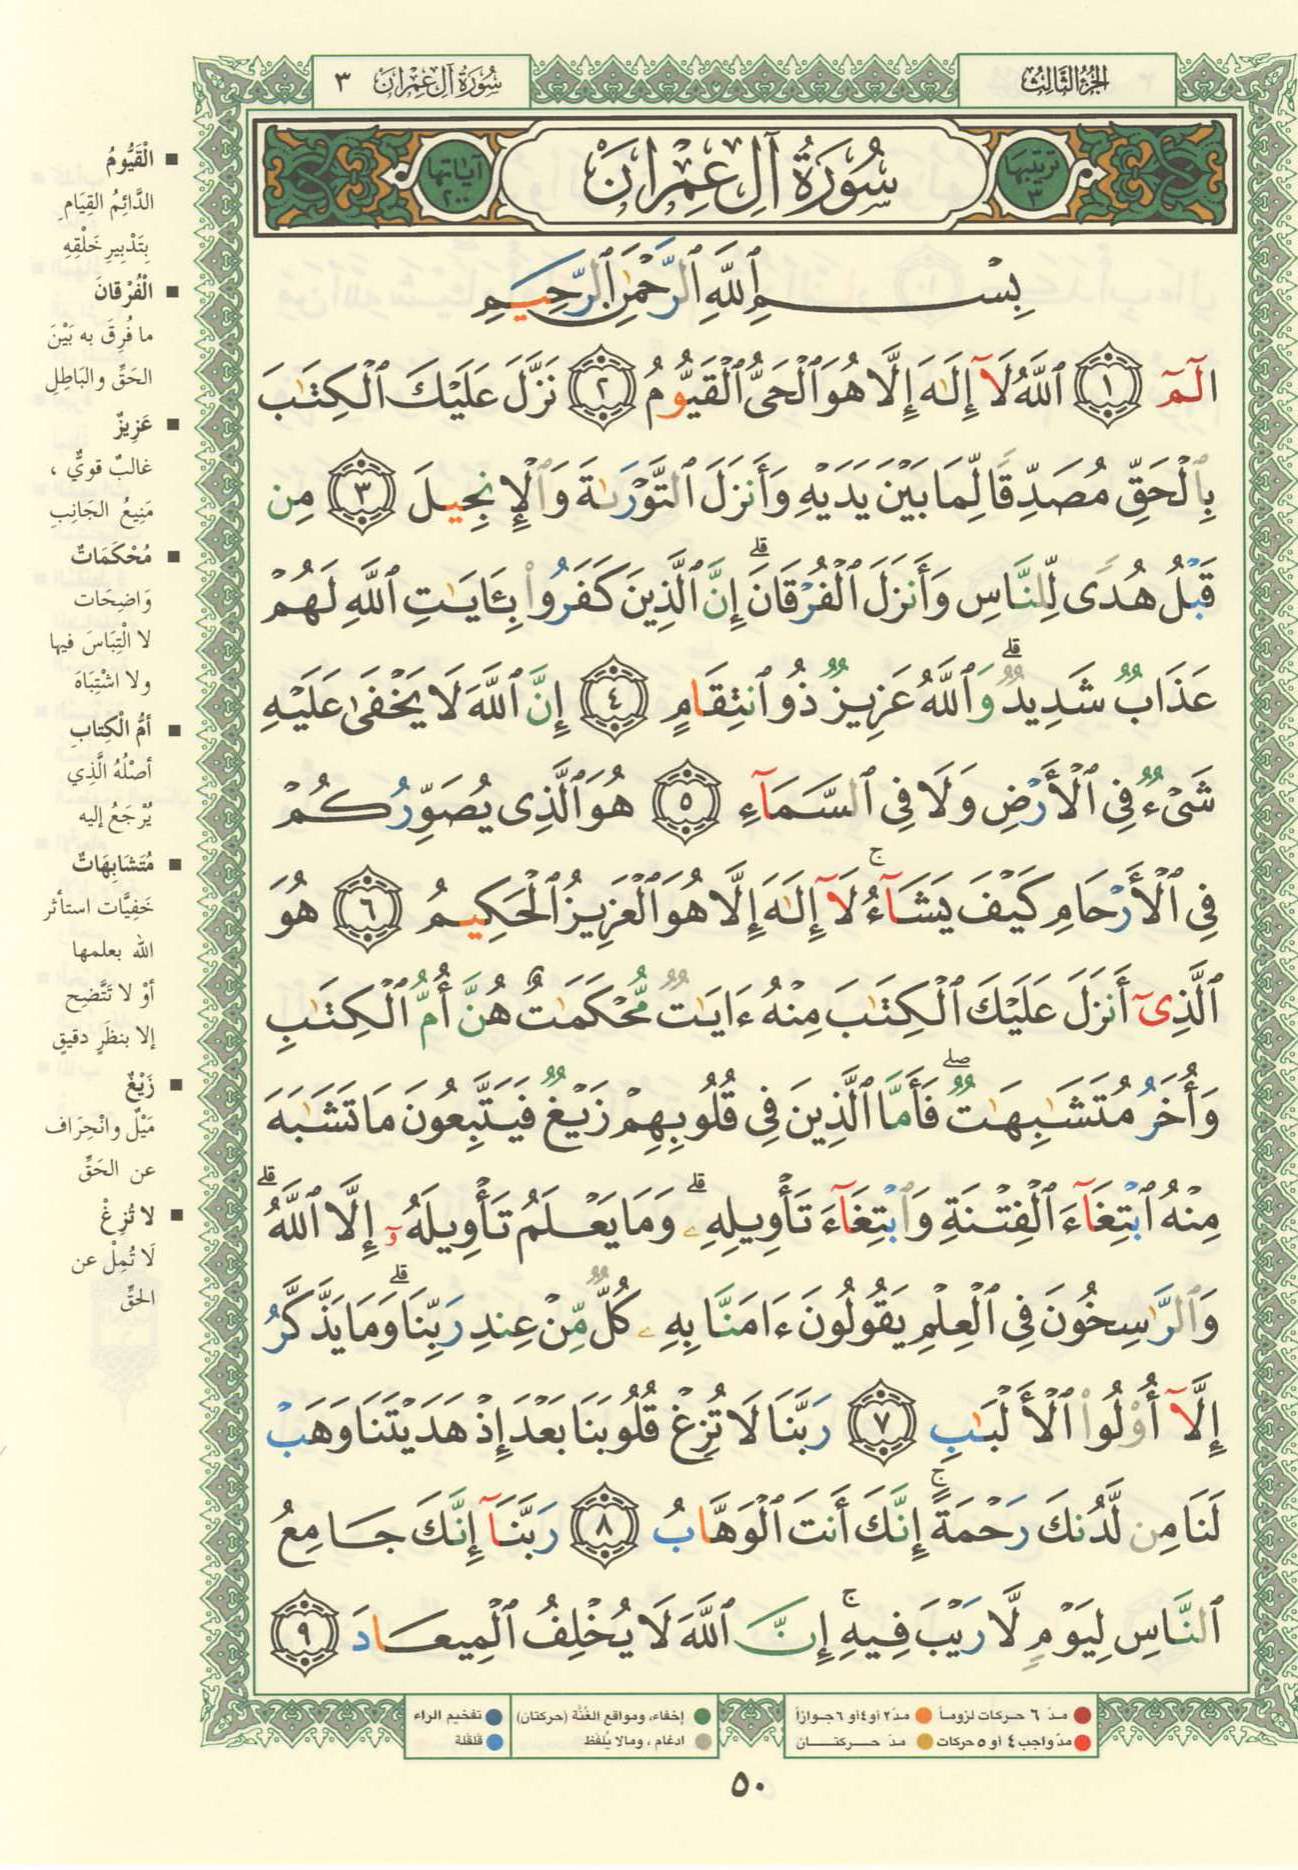 الجزء الثالث
سورة آل عمران ٣
ترتيبها ٣
سُورَةُ آلِ عِمْرَانَ
آياتها ٢٠٠
بِسْمِ ٱللَّهِ ٱلرَّحْمَٰنِ ٱلرَّحِيمِ
الٓمٓ ١ ٱللَّهُ لَآ إِلَٰهَ إِلَّا هُوَ ٱلْحَىُّ ٱلْقَيُّومُ ٢ نَزَّلَ عَلَيْكَ ٱلْكِتَٰبَ
بِٱلْحَقِّ مُصَدِّقًا لِّمَا بَيْنَ يَدَيْهِ وَأَنزَلَ ٱلتَّوْرَىٰةَ وَٱلْإِنجِيلَ ٣ مِن
قَبْلُ هُدًى لِّلنَّاسِ وَأَنزَلَ ٱلْفُرْقَانَ ۗ إِنَّ ٱلَّذِينَ كَفَرُوا۟ بِـَٔايَٰتِ ٱللَّهِ لَهُمْ
عَذَابٌ شَدِيدٌ ۗ وَٱللَّهُ عَزِيزٌ ذُو ٱنتِقَامٍ ٤ إِنَّ ٱللَّهَ لَا يَخْفَىٰ عَلَيْهِ
شَىْءٌ فِى ٱلْأَرْضِ وَلَا فِى ٱلسَّمَآءِ ٥ هُوَ ٱلَّذِى يُصَوِّرُكُمْ
فِى ٱلْأَرْحَامِ كَيْفَ يَشَآءُ ۚ لَآ إِلَٰهَ إِلَّا هُوَ ٱلْعَزِيزُ ٱلْحَكِيمُ ٦ هُوَ
ٱلَّذِىٓ أَنزَلَ عَلَيْكَ ٱلْكِتَٰبَ مِنْهُ ءَايَٰتٌ مُّحْكَمَٰتٌ هُنَّ أُمُّ ٱلْكِتَٰبِ
وَأُخَرُ مُتَشَٰبِهَٰتٌ ۖ فَأَمَّا ٱلَّذِينَ فِى قُلُوبِهِمْ زَيْغٌ فَيَتَّبِعُونَ مَا تَشَٰبَهَ
مِنْهُ ٱبْتِغَآءَ ٱلْفِتْنَةِ وَٱبْتِغَآءَ تَأْوِيلِهِۦ ۗ وَمَا يَعْلَمُ تَأْوِيلَهُۥٓ إِلَّا ٱللَّهُ ۗ
وَٱلرَّٰسِخُونَ فِى ٱلْعِلْمِ يَقُولُونَ ءَامَنَّا بِهِۦ كُلٌّ مِّنْ عِندِ رَبِّنَا ۗ وَمَا يَذَّكَّرُ
إِلَّآ أُو۟لُوا۟ ٱلْأَلْبَٰبِ ٧ رَبَّنَا لَا تُزِغْ قُلُوبَنَا بَعْدَ إِذْ هَدَيْتَنَا وَهَبْ
لَنَا مِن لَّدُنكَ رَحْمَةً ۚ إِنَّكَ أَنتَ ٱلْوَهَّابُ ٨ رَبَّنَآ إِنَّكَ جَامِعُ
ٱلنَّاسِ لِيَوْمٍ لَّا رَيْبَ فِيهِ ۚ إِنَّ ٱللَّهَ لَا يُخْلِفُ ٱلْمِيعَادَ ٩
■ الْقَيُّومُ
الدَّائِمُ القِيَامِ
بِتَدْبِيرِ خَلْقِهِ
■ الْفُرْقَانَ
ما فُرِقَ به بَيْنَ
الحَقِّ والبَاطِلِ
■ عَزِيزٌ
غالبٌ قويٌّ ،
مَنِيعُ الجَانِبِ
■ مُحْكَمَاتٌ
وَاضِحَات
لا الْتِبَاسَ فيها
ولا اشْتِبَاهَ
■ أُمُّ الْكِتَابِ
أصْلُهُ الَّذِي
يُرْجَعُ إليه
■ مُتَشَابِهَاتٌ
خَفِيَّات استأثر
الله بعلمها
أوْ لا تَتَّضِح
إلا بنظَرٍ دقيقٍ
■ زَيْغٌ
مَيْلٌ وانْحِرَاف
عن الحَقِّ
■ لا تُزِغْ
لَا تُمِلْ عن
الحَقِّ
مدّ ٦ حركات لزوماً مدّ ٢ أو ٤ أو ٦ جوازاً
مدّ واجب ٤ أو ٥ حركات مدّ حركتان
إخفاء، ومواقع الغُنَّة (حركتان)
ادغام ، ومالا يُلفَظ
تفخيم الراء
قلقلة
٥٠